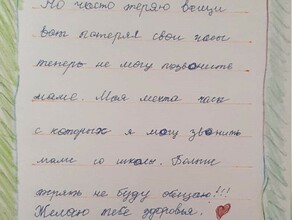 Но часто теряю вещи
вот потерял свои часы
теперь не могу позвонить
маме. Моя мечта часы
с которых я могу звонить
маме со школы. Больше
терять не буду обещаю!!!
Желаю тебе здоровья.